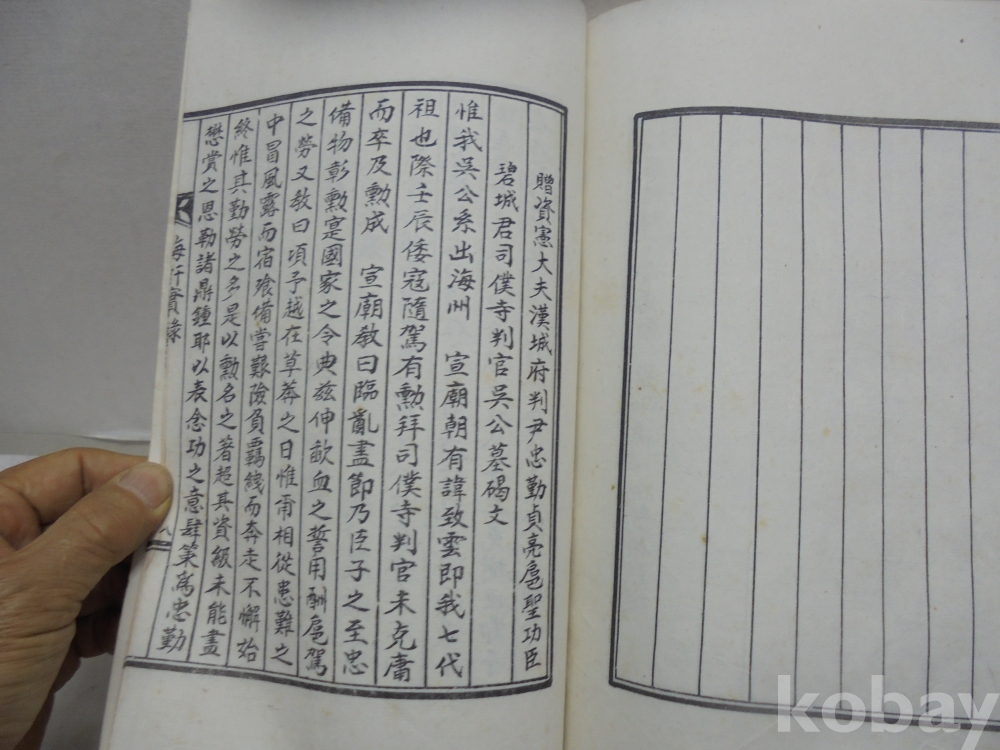 贈資憲大夫漢城府判尹忠勤貞亮扈聖功臣
碧城君司僕寺判官吳公墓碣文
惟我吳公系出海州 宣廟朝有諱致雲即我七代
祖也際壬辰倭寇隨駕有勳拜司僕寺判官未克庸
而卒及勳成 宣廟敎曰臨亂盡節乃臣子之至忠
備物彰勳寔國家之令典玆伸歃血之誓用酬扈駕
之勞又敎曰頃予越在草莽之日惟甭相從患難之
中冒風露而宿飱備嘗艱險負羈絏而奔走不懈始
終惟其勤勞之多是以勳名之著超其資級未能盡
懋賞之恩勒諸鼎鍾耶以表念功之意肆策爲忠勤
實錄
八
kobay